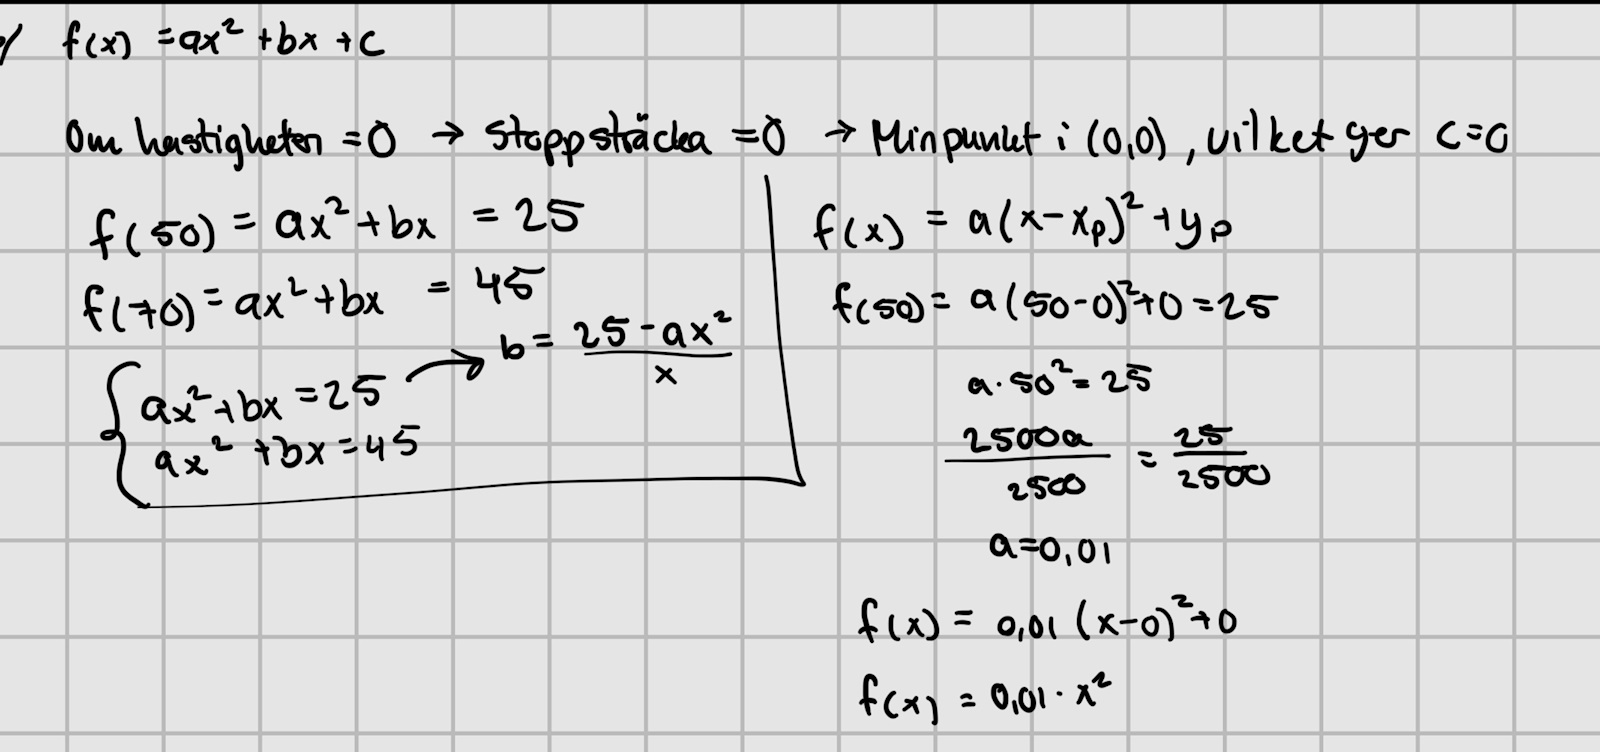 f(x) = ax² + bx + c
Om hastigheten = 0 → Stoppsträcka = 0 → Minpunkt i (0,0), vilket ger c = 0
f(50) = ax² + bx = 25
f(70) = ax² + bx = 45
{ ax² + bx = 25 → b = (25 - ax²)/x
ax² + bx = 45
f(x) = a(x - xₚ)² + yₚ
f(50) = a(50 - 0)² + 0 = 25
a · 50² = 25
2500a/2500 = 25/2500
a = 0,01
f(x) = 0,01 (x - 0)² + 0
f(x) = 0,01 · x²